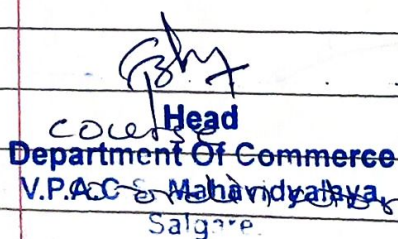 Head
course
Department Of Commerce
V.P.A.C S Mahavidyalaya,
Salgare.